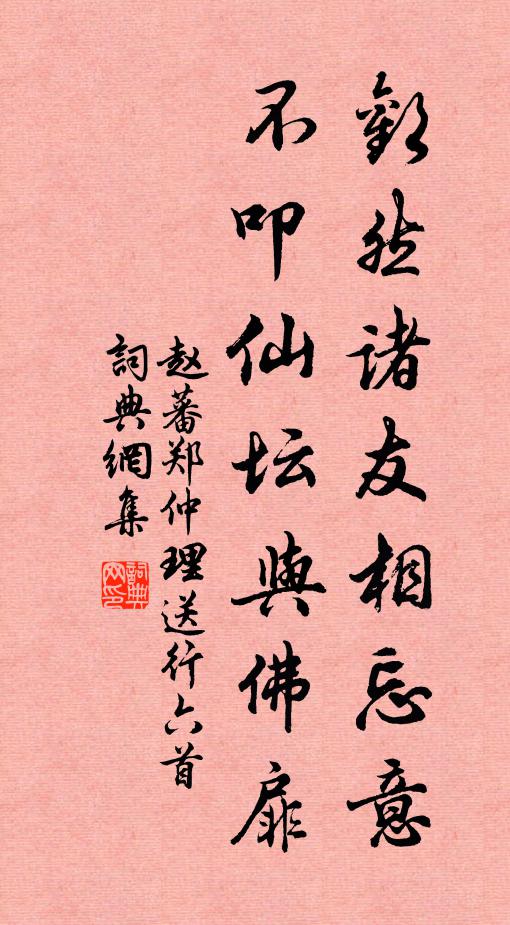 歡然诸友相忘意
不叩仙坛與佛扉
赵蕃郑仲理送行六首
詞典網集
詞典
网印